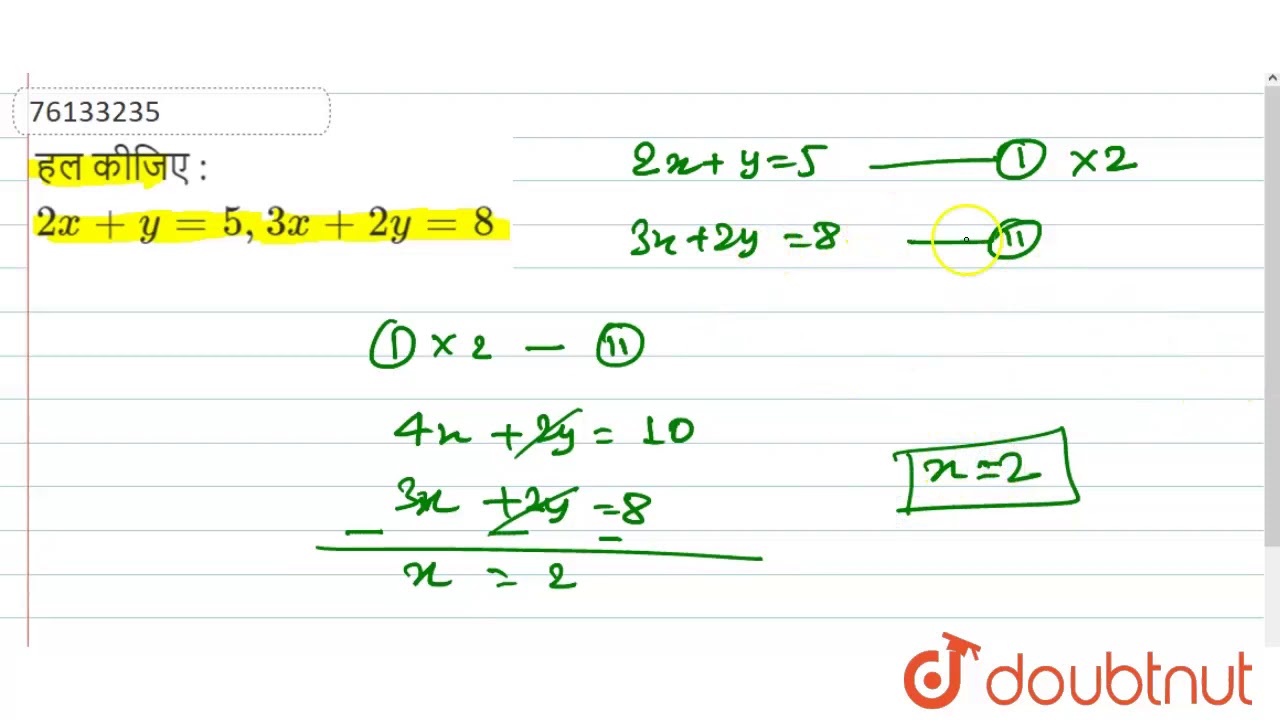 76133235
हल कीजिए :
2x + y = 5, 3x + 2y = 8
2x + y = 5 —— Ⓘ × 2
3x + 2y = 8 —— Ⓘⓘ
Ⓘ × 2 — Ⓘⓘ
4x + 2y = 10
3x + 2y = 8
— — —
x = 2
x = 2
doubtnut